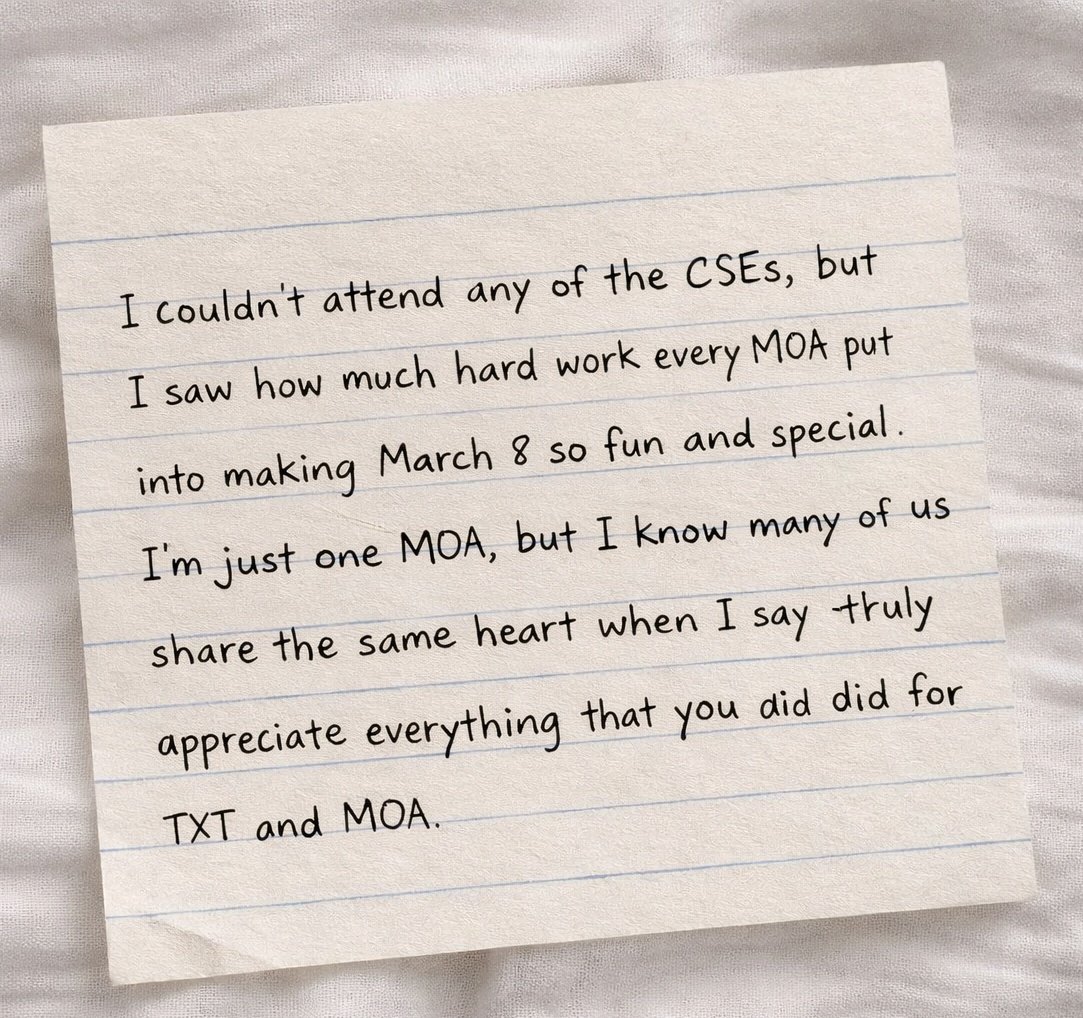 I couldn't attend any of the CSEs, but
I saw how much hard work every MOA put
into making March 8 so fun and special.
I'm just one MOA, but I know many of us
share the same heart when I say truly
appreciate everything that you did did for
TXT and MOA.